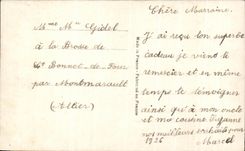 Mme Mlle Gidel
à la Brosse de
St Bonnet-de-Four
par Montmarault
(Allier)
Made in France
Chère Marraine
J'ai reçu ton superbe
cadeau je viens te
remercier et en même
temps te témoigner
ainsi qu'à mon oncle
et ma cousine Suzanne
nos meilleurs souhaits pour
1926 Marcel